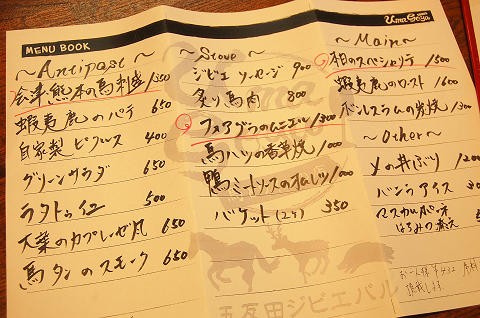 MENU BOOK
UmaGoya
〜Antipast〜
会津、熊本の馬刺盛 1500
蝦夷鹿のパテ 650
自家製ピクルス 400
グリーンサラダ 650
ラタトゥイユ 500
大葉のカプレーゼ風 650
馬タンのスモーク 650
〜Stove〜
ジビエソーセージ 900
炙り馬肉 800
フォアグラのムニエル 1300
馬ハツの香草焼 1000
鴨ミートソースのオムレツ 1000
バケット(2ケ) 350
〜Main〜
柏のスペシャリテ 1500
蝦夷鹿のロースト 1600
ボンレスラムの炭焼 1300
〜Other〜
〆の丼ぶり 1200
バニラアイス
マスカルポーネ
はちみつ添え
頂戴します
五反田ジビエバル